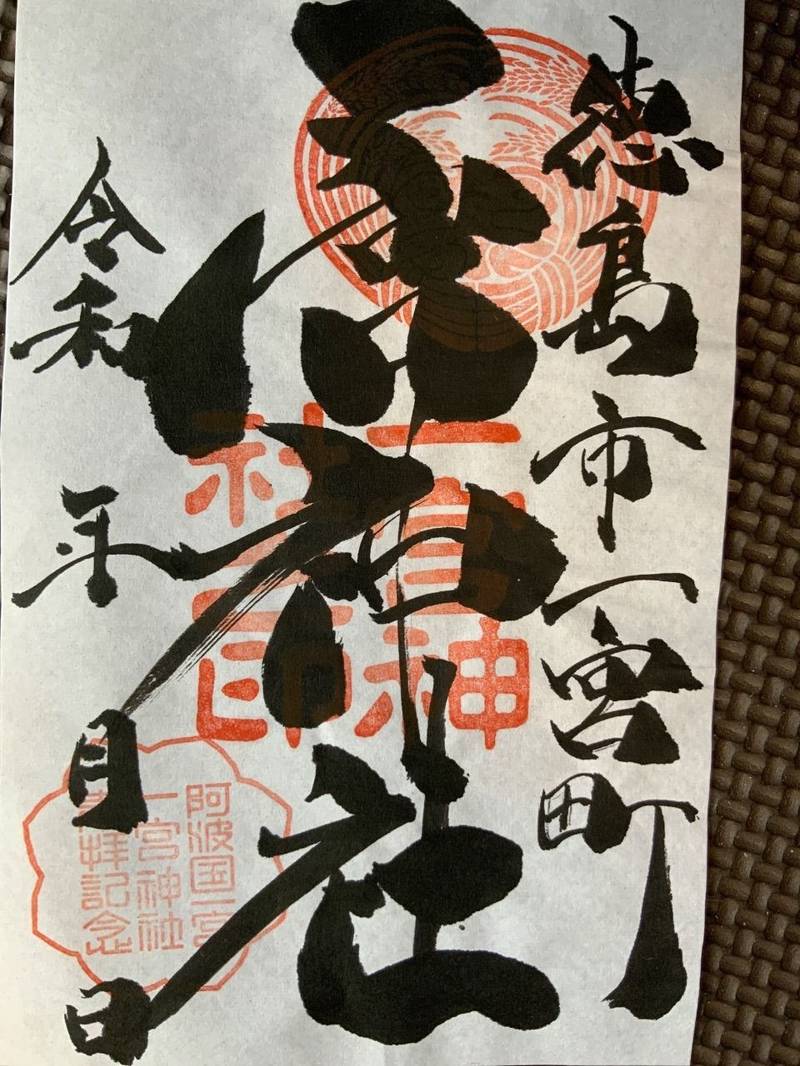 徳島市一宮町
一宮神社
令和 年 月 日
一宮神
社之印
阿波国一宮
一宮神社
参拝記念